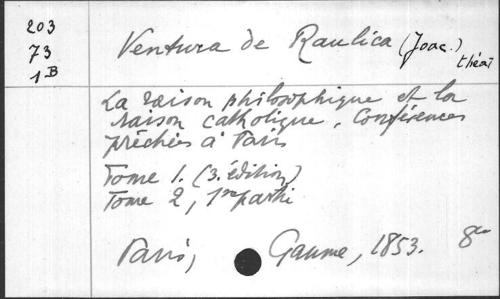 203
73
1B
Ventura de Raulica (Joac.) théat
La raison philosophique et la
raison catholique. Conférences
prêchées à Paris
Tome 1. (3. édition)
Tome 2, 1re partie
Paris, Gaume, 1853. 8°